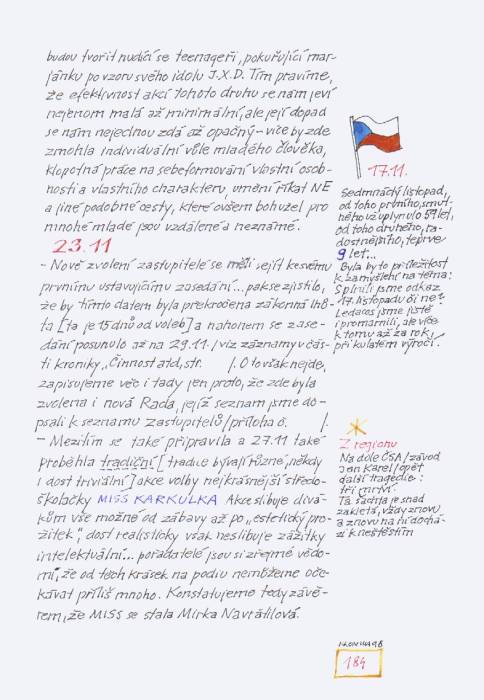 budou tvořit nudící se teenageři, pokuřující mar-
jánku po vzoru svého idolu J.X.D. Tím pravíme,
že efektivnost akcí tohoto druhu se nám jeví
nejenom malá až minimální, ale její dopad
se nám nejednou zdá až opačný - více by zde
zmohla individuální vůle mladého člověka,
klopotná práce na sebeformování vlastní osob-
nosti a vlastního charakteru, umění říkat NE
a jiné podobné cesty, které ovšem bohužel pro
mnohé mladé jsou vzdálené a neznámé.
23.11
- Nově zvolení zastupitelé se měli sejít ke svému
prvnímu ustavujícímu zasedání... pak se zjistilo,
že by tímto datem byla překročena zákonná lhů-
ta [ta je 15 dnů od voleb] a nakonem se zase-
dání posunulo až na 29.11. / viz záznamy v čás-
ti kroniky „Činnost atd, str. /. O to však nejde,
zapisujeme věc i tady jen proto, že zde byla
zvolena i nová Rada, jejíž seznam jsme do-
psali k seznamu zastupitelů / příloha č. /.
- Mezitím se také připravila a 27.11 také
proběhla tradiční [tradice bývají různé, někdy
i dost triviální] akce volby nejkrásnější středo-
školačky MISS KARKULKA Akce slibuje divá-
kům vše možné od zábavy až po „estetický pro-
žitek", dost realisticky však neslibuje zážitky
intelektuální... pořadatelé jsou si zřejmě vědo-
mi, že od těch krásek na podiu nemůžeme oče-
kávat příliš mnoho. Konstatujeme tedy závě-
rem, že MISS se stala Mirka Navrátilová.
17.11.
Sedmnáctý listopad,
od toho prvního, smut-
ného už uplynulo 59 let,
od toho druhého, ra-
dostnějšího, teprve
9 let...
Byla by to příležitost
k zamyšlení na téma:
Splnili jsme odkaz
17. listopadu či ne?
Ledacos jsme jistě
i promarnili, ale více
k tomu až za rok, i
při kulatém výročí.
Z regionu
Na dole ČSA / závod
Jan Karel / opět
další tragedie:
tři mrtví.
Ta šachta je snad
zakletá, vždy znovu
a znovu na ní dochá-
zí k neštěstím
184